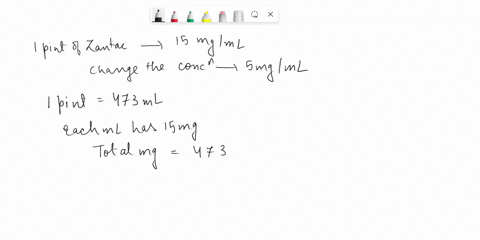 1 pint of Zantac → 15 mg/mL
change the concⁿ → 5mg/mL
1 pint = 473mL
each mL has 15mg
Total mg = 473